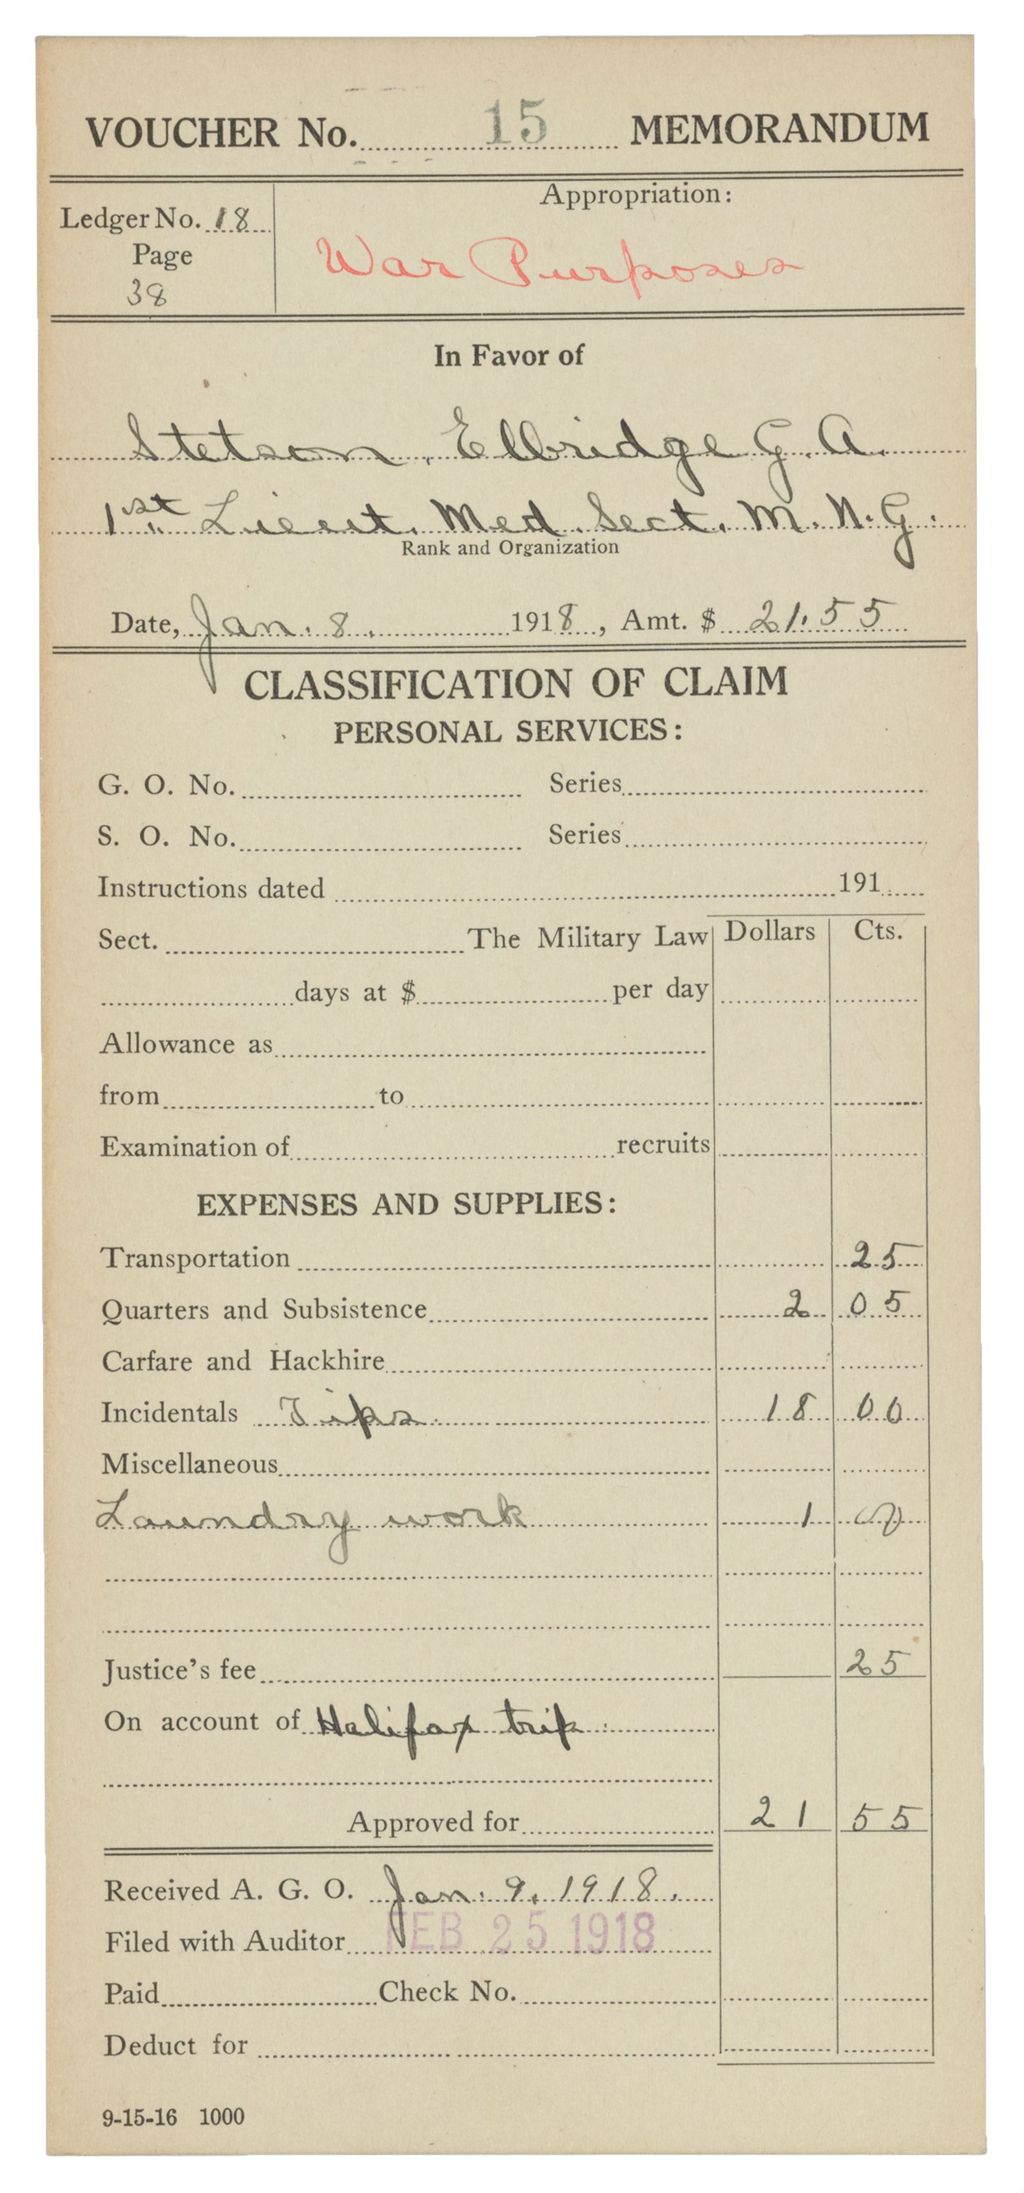 VOUCHER No. 15 MEMORANDUM
Ledger No. 18
Page
38
Appropriation:
War Purposes
In Favor of
Stetson, Elbridge G. A.
1st. Lieut. Med. Sect. M. N. G.
Rank and Organization
Date, Jan. 8. 1918, Amt. $ 21.55
CLASSIFICATION OF CLAIM
PERSONAL SERVICES:
G. O. No. Series
S. O. No. Series
Instructions dated 191
Sect. The Military Law Dollars Cts.
days at $ per day
Allowance as
from to
Examination of recruits
EXPENSES AND SUPPLIES:
Transportation 25
Quarters and Subsistence 2 05
Carfare and Hackhire
Incidentals Tips 18 00
Miscellaneous
Laundry work 1 00
Justice's fee 25
On account of Halifax trip.
Approved for 21 55
Received A. G. O. Jan. 9, 1918.
Filed with Auditor FEB 25 1918
Paid Check No.
Deduct for
9-15-16 1000